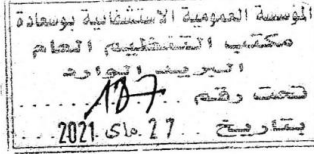 المؤسسة العمومية الاستشفائية بوسعادة
مكتب التنظيم العام
البريد الوارد
تحت رقم 187
بتاريخ 27 ماي 2021